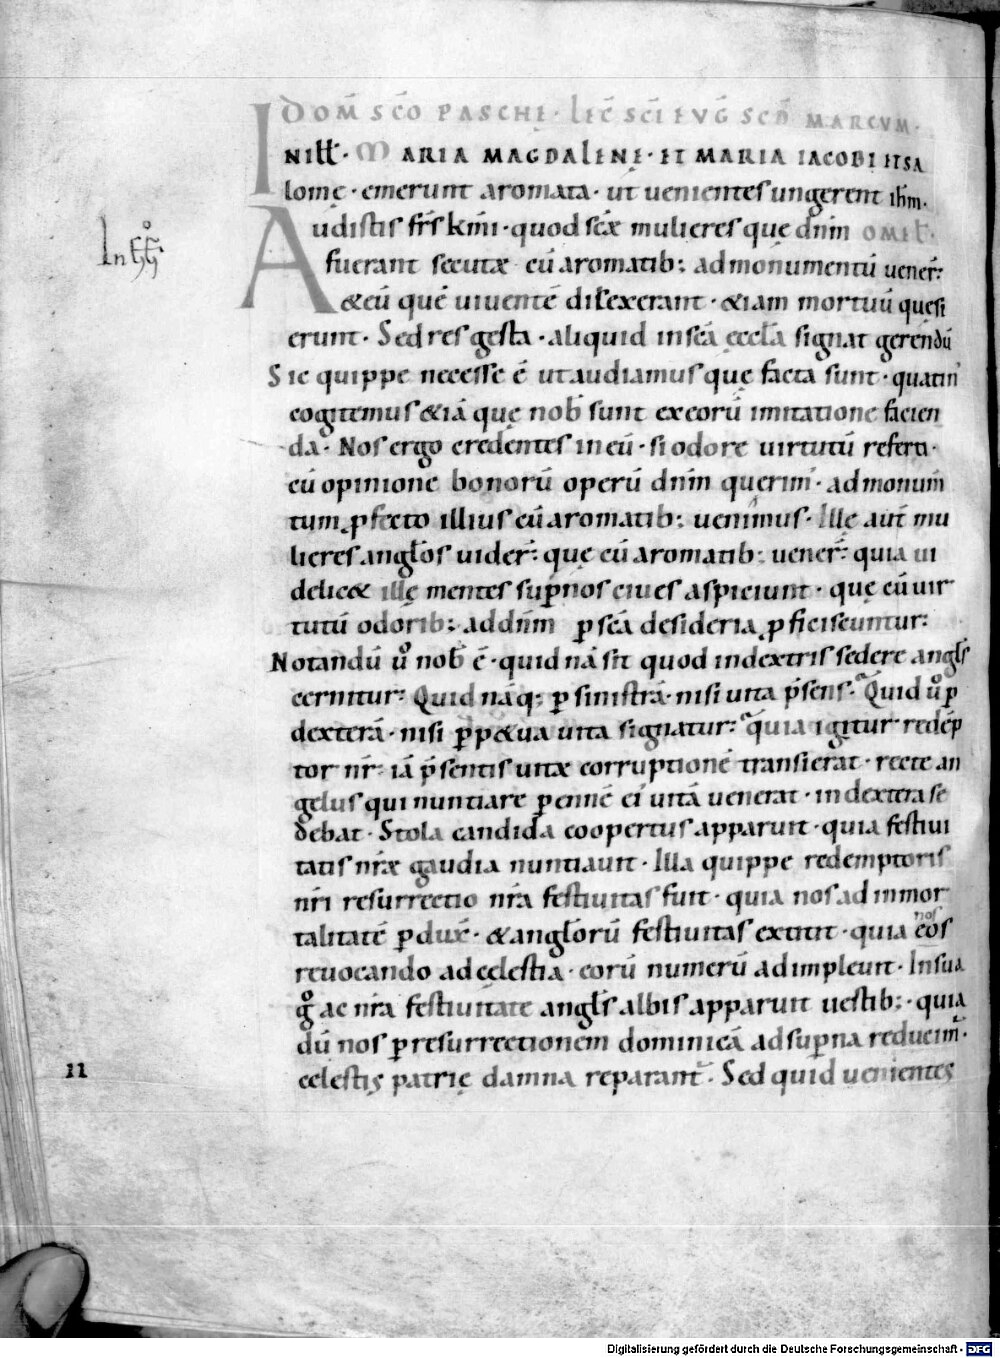 DOM̄ SC̄O PASCHĘ · LEC̄ SC̄I EVḠ SCD̄ MARCVM·
IN ILL̄· MARIA MAGDALENĘ· ET MARIA IACOBI ET SA
lomę · emerunt aromata · ut uenientes ungerent ihm̄·
Audistis frs̄ km̄i · quod sc̄æ mulieres quę dn̄m OMEL̄·
fuerant secutæ cū aromatib; ad monumentū uener̄:
&eū quē uiuentē dilexerant · &iam mortuū quesi
erunt · Sed res gesta · aliquid in sc̄a ęccl̄a signat gerendū
Sic quippe necesse ē ut audiamus quę facta sunt · quatin'
cogitemus &iā quę nob̄ sunt ex eorū imitatione facien
da · Nos ergo credentes in eū · si odore uirtutū referti ·
cū opinione bonorū operū dn̄m querim' · ad monum̄
tum ꝓfecto illius cū aromatib; uenimus · Illę aut̄ mu
lieres angl̄os uider̄: quę cū aromatib; uener̄: quia ui
delic& illę mentes sup̄nos ciues aspiciunt · quę cū uir
tutū odorib; ad dn̄m ꝑ sc̄a desideria ꝓficiscuntur:
Notandū u° nob̄ ē · quid nā sit quod in dextris sedere angl̄s
cernitur: Quid nāq; ꝑ sinistrā · nisi uita p̄sens · Quid u° ꝑ
dexterā · nisi ꝑp&ua uita signatur: quia igitur redēp
tor nr̄: iā p̄sentis uitæ corruptionē transierat · recte an
gelus qui nuntiare ꝑennē ei' uitā uenerat · in dextera se
debat · Stola candida coopertus apparuit · quia festiui
tatis nr̄æ gaudia nuntiauit · Illa quippe redemptoris
nr̄i resurrectio nr̄a festiuitas fuit · quia nos ad inmor
talitatē ꝑdux̄ · &angl̄orū festiuitas extitit · quia eos
nos
reuocando ad cęlestia · eorū numerū adimpleuit · In sua
g° ac nr̄a festiuitate angl̄s albis apparuit uestib; · quia
dū nos ꝑ resurrectionem dominicā ad sup̄na reducim̄ ·
cęlestis patrię damna reparant' · Sed quid uenientes
11